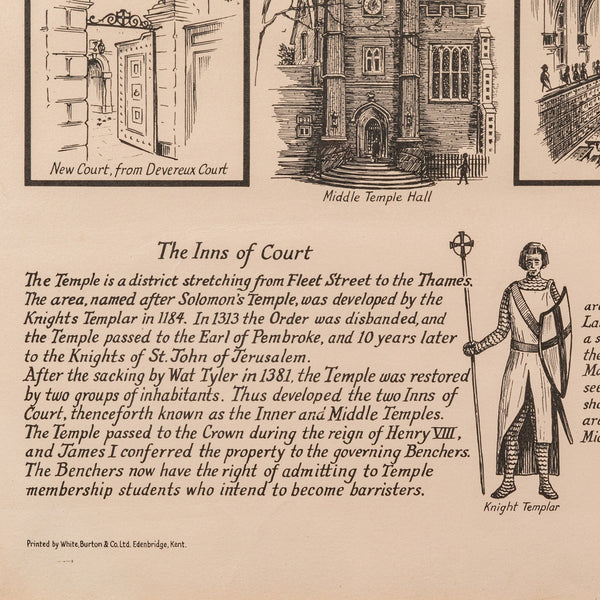 New Court, from Devereux Court
Middle Temple Hall
The Inns of Court
The Temple is a district stretching from Fleet Street to the Thames.
The area, named after Solomon's Temple, was developed by the
Knights Templar in 1184. In 1313 the Order was disbanded, and
the Temple passed to the Earl of Pembroke, and 10 years later
to the Knights of St. John of Jerusalem.
After the sacking by Wat Tyler in 1381, the Temple was restored
by two groups of inhabitants. Thus developed the two Inns of
Court, thenceforth known as the Inner and Middle Temples.
The Temple passed to the Crown during the reign of Henry VIII,
and James I conferred the property to the governing Benchers.
The Benchers now have the right of admitting to Temple
membership students who intend to become barristers.
Knight Templar
Printed by White, Burton & Co. Ltd. Edenbridge, Kent.